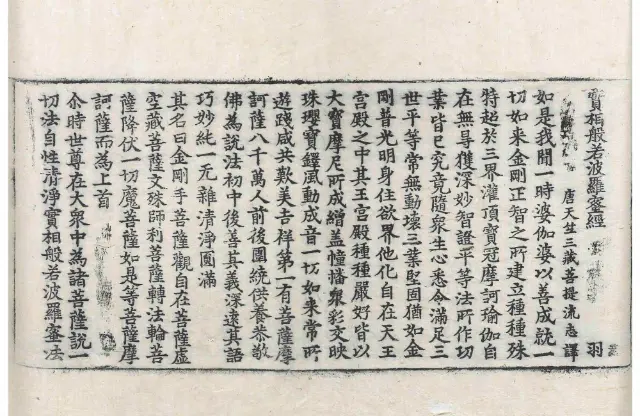 實相般若波羅蜜經 羽
唐天竺三藏菩提流志譯
如是我聞一時婆伽婆以善成就一
切如來金剛正智之所建立種種殊
特起於三界灌頂寶冠摩訶瑜伽自
在無㝵獲深妙智證平等法所作功
業皆已究竟隨衆生心悉令滿足三
世平等常無動壞三業堅固猶如金
剛普光明身住欲界他化自在天王
宮殿之中其王宮殿種種嚴好皆以
大寶摩尼所成繒盖幢幡衆彩交映
珠瓔寶鐸風動成音一切如來常所
遊踐咸共歎美吉祥第一有菩薩摩
訶薩八千萬人前後圍繞供養恭敬
佛為說法初中後善其義深遠其語
巧妙純一无雜清淨圓滿
其名曰金剛手菩薩觀自在菩薩虛
空藏菩薩文殊師利菩薩轉法輪菩
薩降伏一切魔菩薩如是等菩薩摩
訶薩而為上首
尒時世尊在大衆中為諸菩薩說一
切法自性清淨實相般若波羅蜜法